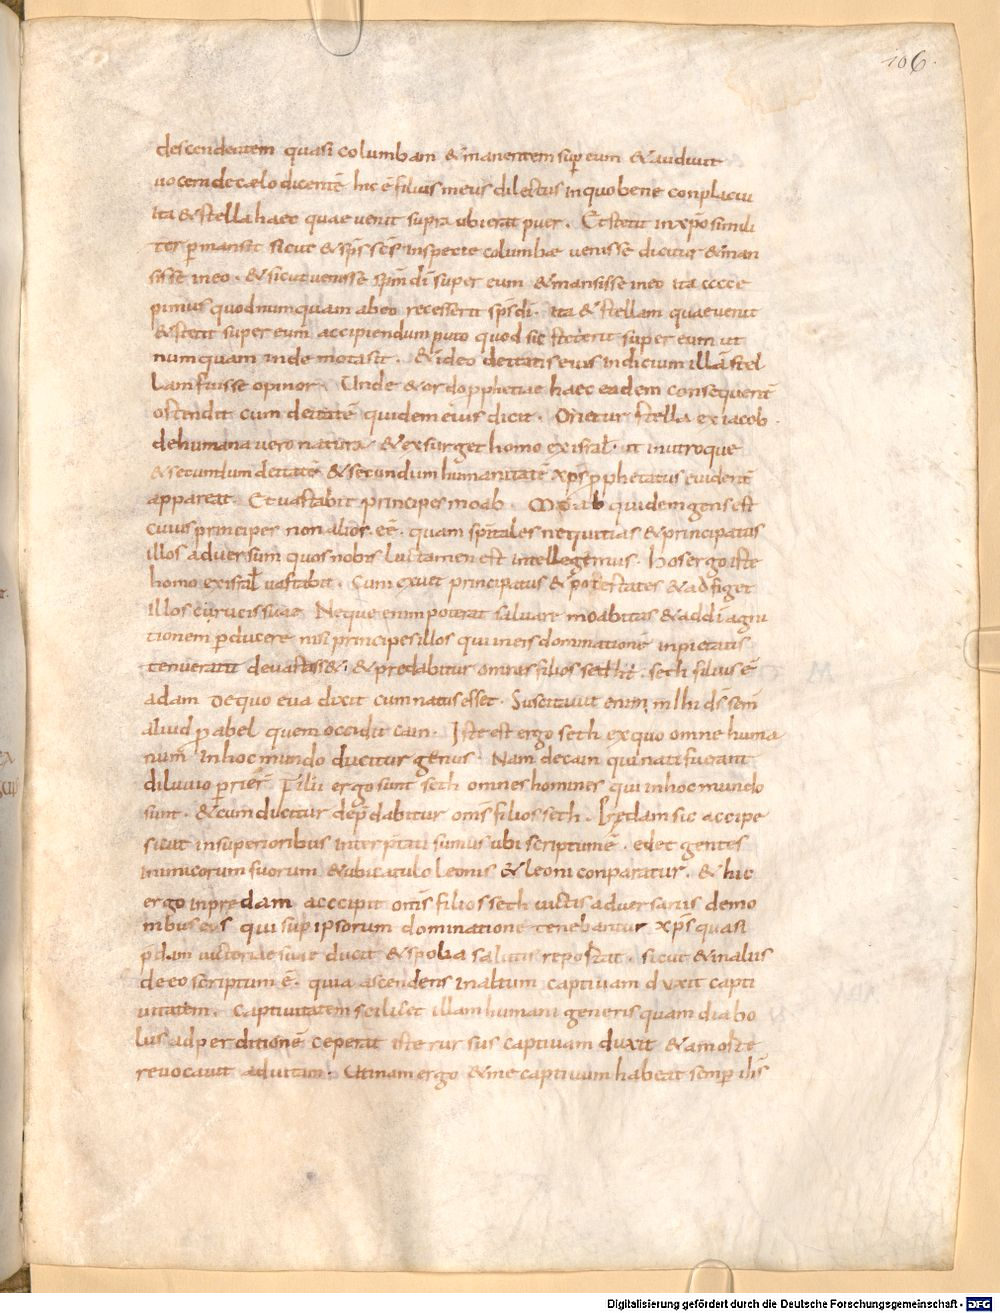 106.
descendentem quasi columbam & manentem sup̄ eum & audivit
uocem de cælo dicentē hic ē filius meus dilectus in quo bene conplacui
ita & stella haec quae uenit supra ubi erat puer . Et stetit in xp̄o simili
ter p̄mansit sicut & sp̄s sc̄s in specie columbæ uenisse dicitur & man
sisse in eo . & sicut uenisse sp̄m dī super eum & mansisse in eo ita acce
pimus quod numquam ab eo recesserit sp̄s dī . ita & stellam quae uenit
& stetit super eum accipiendum puto quod sic steterit super eum ut
numquam inde mota sit . & ideo deitatis eius indicium illā stel
lam fuisse opinor . Unde & ordo pphetiae haec eadem consequent̄
ostendit cum deitatē quidem eius dicit . Orietur stella ex iacob .
de humana uero natura . & exsurget homo ex isrl̄ . ut in utroque
& secundum deitatē & secundum humanitatē xp̄s p̄phetatus euident̄
appareat . Et uastabit principes moab . Moab quidem gens est
cuius principes non alios . eē . quam sp̄itales nequitias & principatus
illos aduersum quos nobis luctamen est intellegimus . hos ergo iste
homo ex isrl̄ uastabit . Cum exuet principatus & potestates & adfiget
illos crucis suae Neque enim poterat saluare moabitas & ad dī agni
tionem p̄ducere nisi principes illos qui in eis dominationē inpietatis
tenuerant deuastass& & predabitur omnes filios seth hic . seth filius ē
adam de quo eua dixit cum natus esset . Suscitauit enim mihi ds̄ sem̄
aliud p̄ abel quem occidit cain . Iste est ergo seth ex quo omne huma
num in hoc mundo ducitur genus . Nam de cain qui nati fuerant
diluuio perier̄ . Filii ergo sunt seth omnes homines qui in hoc mundo
sunt . & cum dicitur dep̄dabitur om̄s filios seth . p̄dam sic accipe
sicut in superioribus interp̄tati sumus ubi scriptum ē . edet gentes
inimicorum suorum & ubi catulo leonis & leoni conparatur . & hic
ergo in predam acccipit om̄s filios seth uictis aduersariis demo
nibus eos qui sup̄ ipsorum dominatione tenebantur xp̄s quasi
p̄dam uictoriae suae ducit & spolia salutis reportat . sicut & in aliis
de eo scriptum ē . quia ascendens in altum captiuam duxit capti
uitatem . captiuitatem scilicet illam humani generis quam diabo
lus ad perditionē ceperat iste rursus captiuam duxit & a morte
reuocauit ad uitam . Utinam ergo & me captiuum habeat semp̄ ih̄s
Digitalisierung gefördert durch die Deutsche Forschungsgemeinschaft - DFG